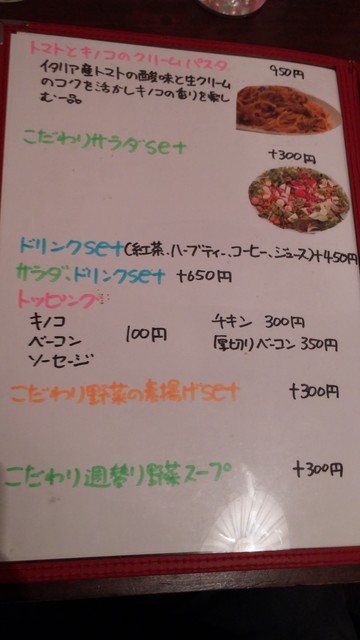 トマトとキノコのクリームパスタ 950円
イタリア産トマトの酸味と生クリーム
のコクを活かしキノコの香りを楽し
む一品
こだわりサラダset +300円
ドリンクset(紅茶、ハーブティー、コーヒー、ジュース)+450円
サラダ、ドリンクset +650円
トッピング
キノコ
ベーコン 100円
ソーセージ
チキン 300円
厚切りベーコン 350円
こだわり野菜の素揚げset +300円
こだわり週替り野菜スープ +300円